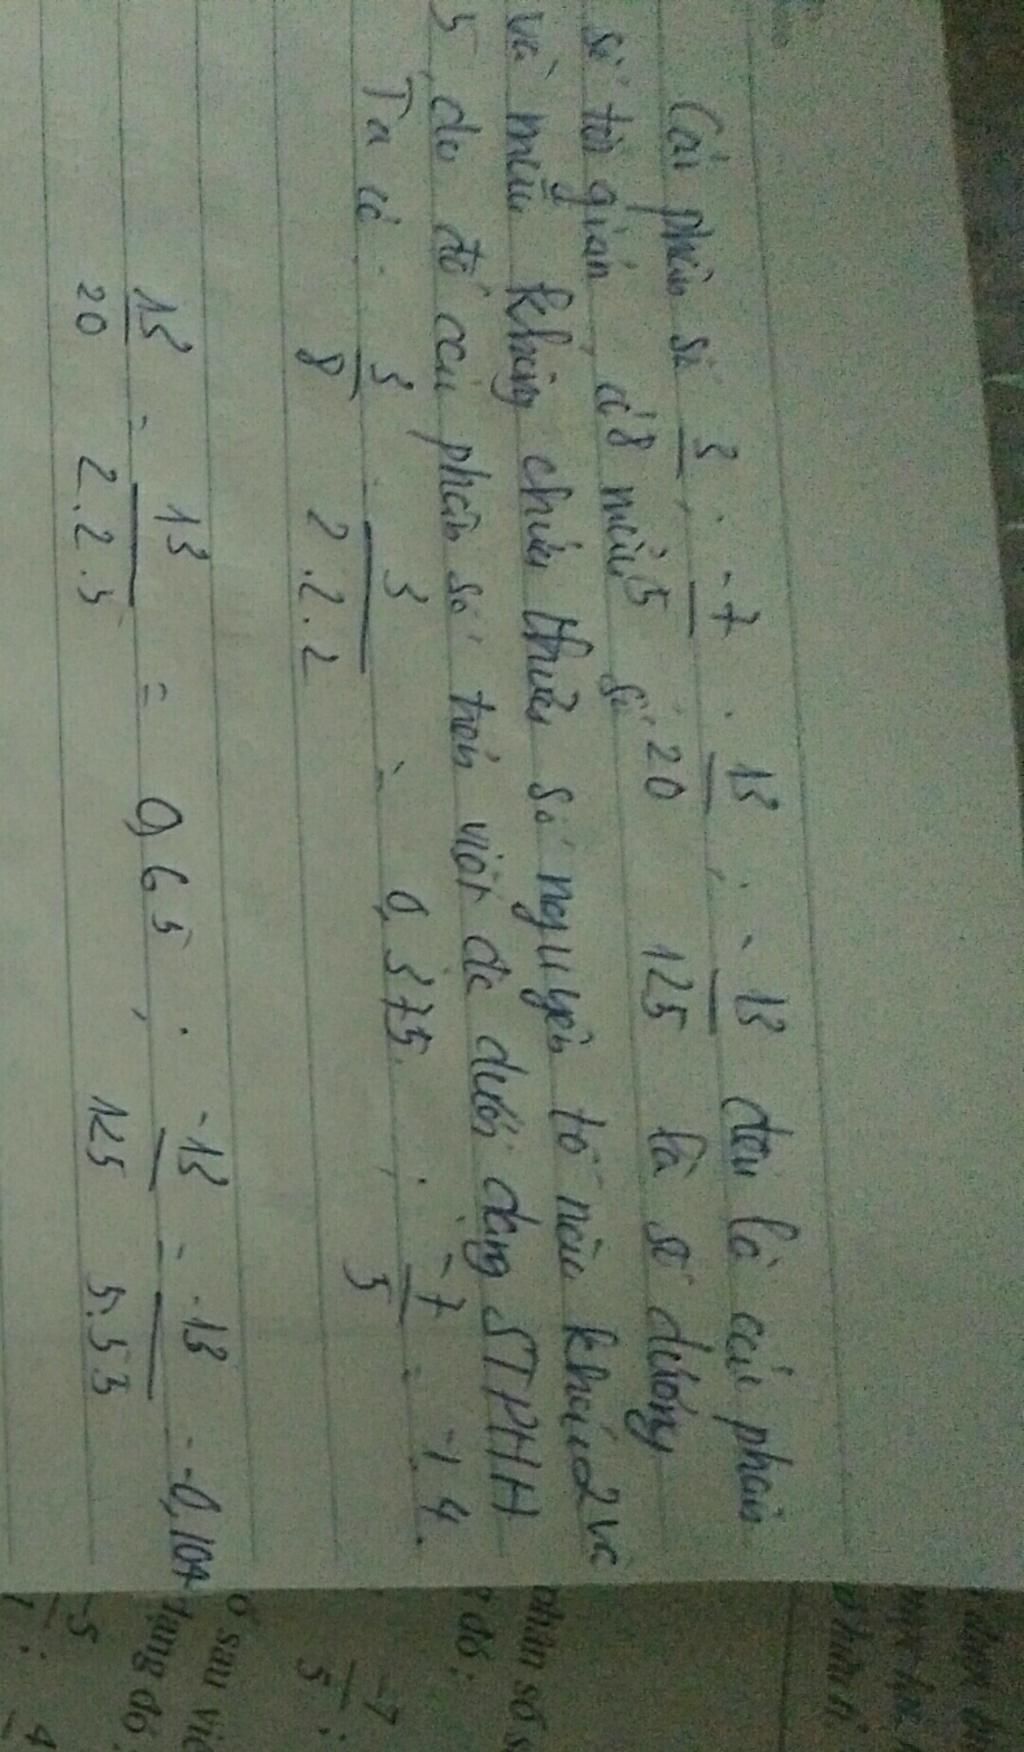 Các phân số 3/8 ; -7/5 ; 13/20 ; -13/125 đều là các phân
số tối giản có mẫu số là số dương
và mẫu không chứa thừa số nguyên tố nào khác 2 và
5 do đó các phân số trên viết đc dưới dạng STPHH
Ta có: 3/8 = 3/2.2.2 = 0,375 ; -7/5 = -1,4.
13/20 = 13/2.2.5 = 0,65 ; -13/125 = -13/5.5.5 = -0,104
phân số s
đó :
-7/5 ;
ố sau viế
dạng đó